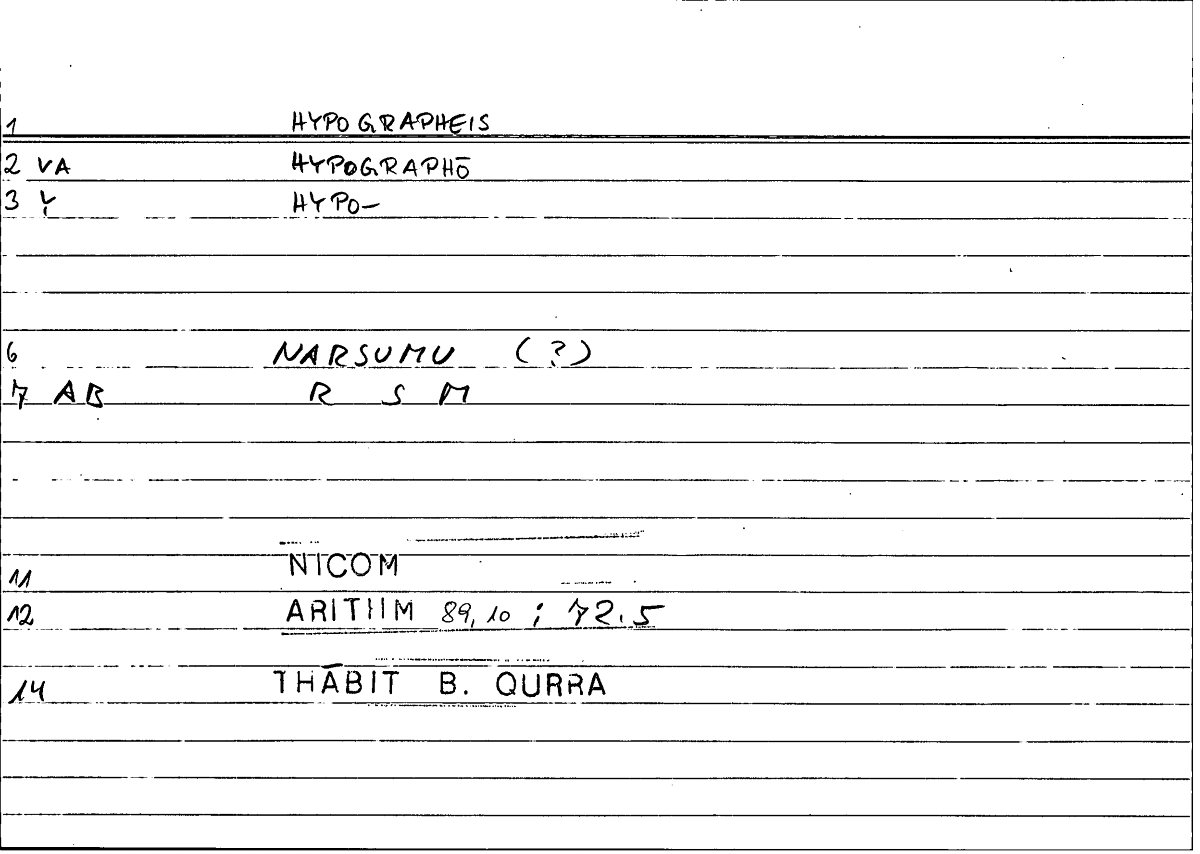 1 HYPOGRAPHEIS
2 VA HYPOGRAPHŌ
3 Y HYPO-
6 NARSUMU (?)
7 AB R S M
11 NICOM
12 ARITIIM 89,10 ; 72.5
14 THĀBIT B. QURRA